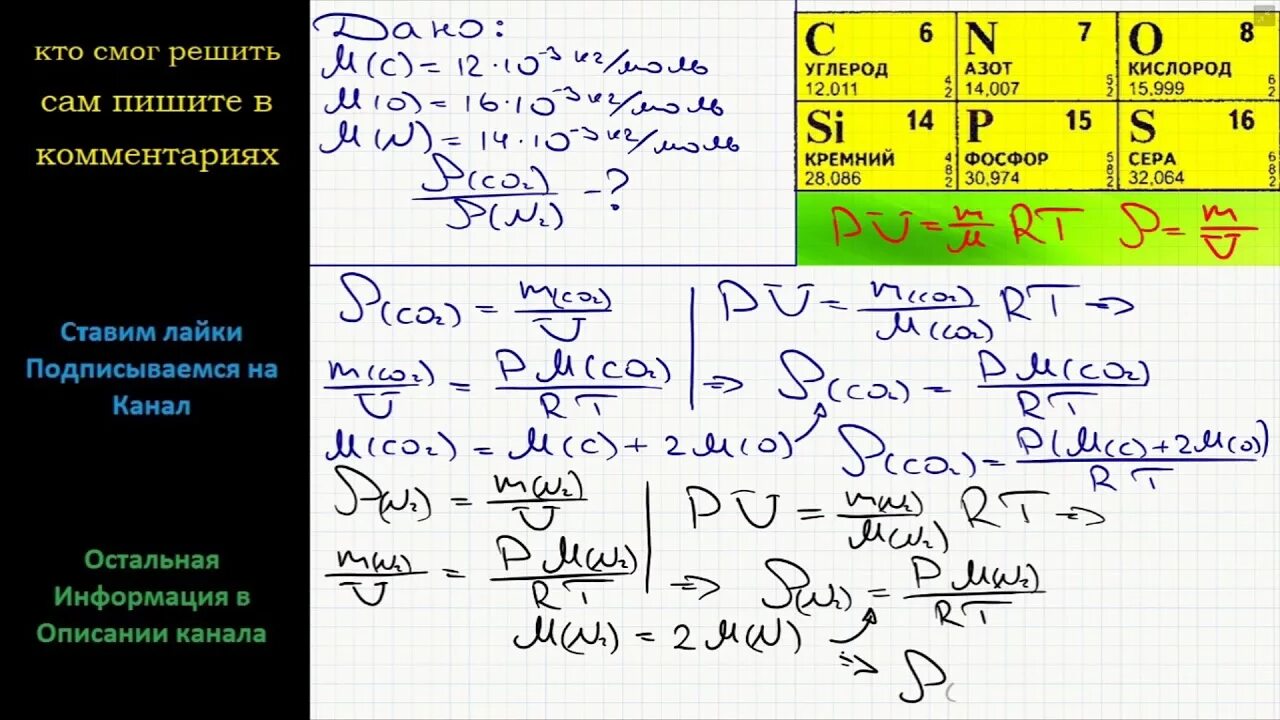 кто смог решить
сам пишите в
комментариях
Ставим лайки
Подписываемся на
Канал
Остальная
Информация в
Описании канала
Дано:
M(C) = 12·10⁻³ кг/моль
M(O) = 16·10⁻³ кг/моль
M(N) = 14·10⁻³ кг/моль
ρ(CO₂)/ρ(N₂) - ?
C 6
УГЛЕРОД
12,011
4
2
N 7
АЗОТ
14,007
5
2
O 8
КИСЛОРОД
15,999
6
2
Si 14
КРЕМНИЙ
28,086
4
8
2
P 15
ФОСФОР
30,974
5
8
2
S 16
СЕРА
32,064
6
8
2
PV = m/M RT ρ = m/V
ρ(CO₂) = m(CO₂)/V | PV = m(CO₂)/M(CO₂) RT ⇒
m(CO₂)/V = PM(CO₂)/RT ⇒ ρ(CO₂) = PM(CO₂)/RT
M(CO₂) = M(C) + 2M(O) ρ(CO₂) = P(M(C) + 2M(O))/RT
ρ(N₂) = m(N₂)/V | PV = m(N₂)/M(N₂) RT ⇒
m(N₂)/V = PM(N₂)/RT ⇒ ρ(N₂) = PM(N₂)/RT
M(N₂) = 2M(N)
⇒ ρ(